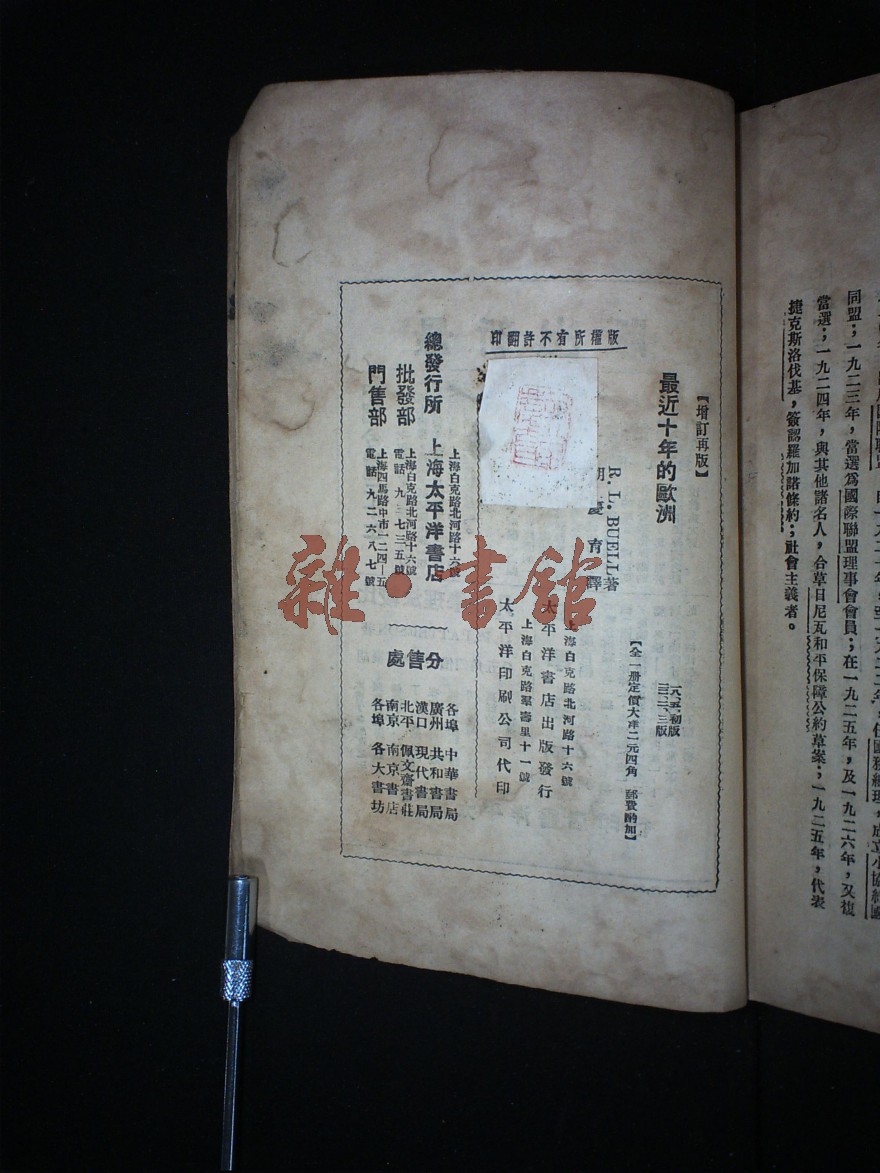 同盟；一九二三年，當選爲國際聯盟理事會會員；在一九二五年，及一九二六年，又復
當選；一九二四年，與其他諸名人，合草日尼瓦和平保障公約草案；一九二五年，代表
捷克斯洛伐基，簽認羅加諾條約；社會主義者。
【增訂再版】
最近十年的歐洲
一八、五、初版
【全一册定價大洋二元四角 郵費酌加】
R. L. BUELL 著
胡慶育譯
版權所有不許翻印
上海白克路北河路十六號
太平洋書店出版發行
上海白克路羣壽里十一號
太平洋印刷公司代印
總發行所 上海太平洋書店
上海白克路北河路十六號
批發部
上海白克路北河路十六號
電話九三七三五號
門售部
上海四馬路中市一二四—五
電話九二六八七號
分售處
各埠 中華書局
廣州 共和書局
漢口 現代書局
北平 佩文齋書莊
南京 南京書店
各埠 各大書坊
雜·書館